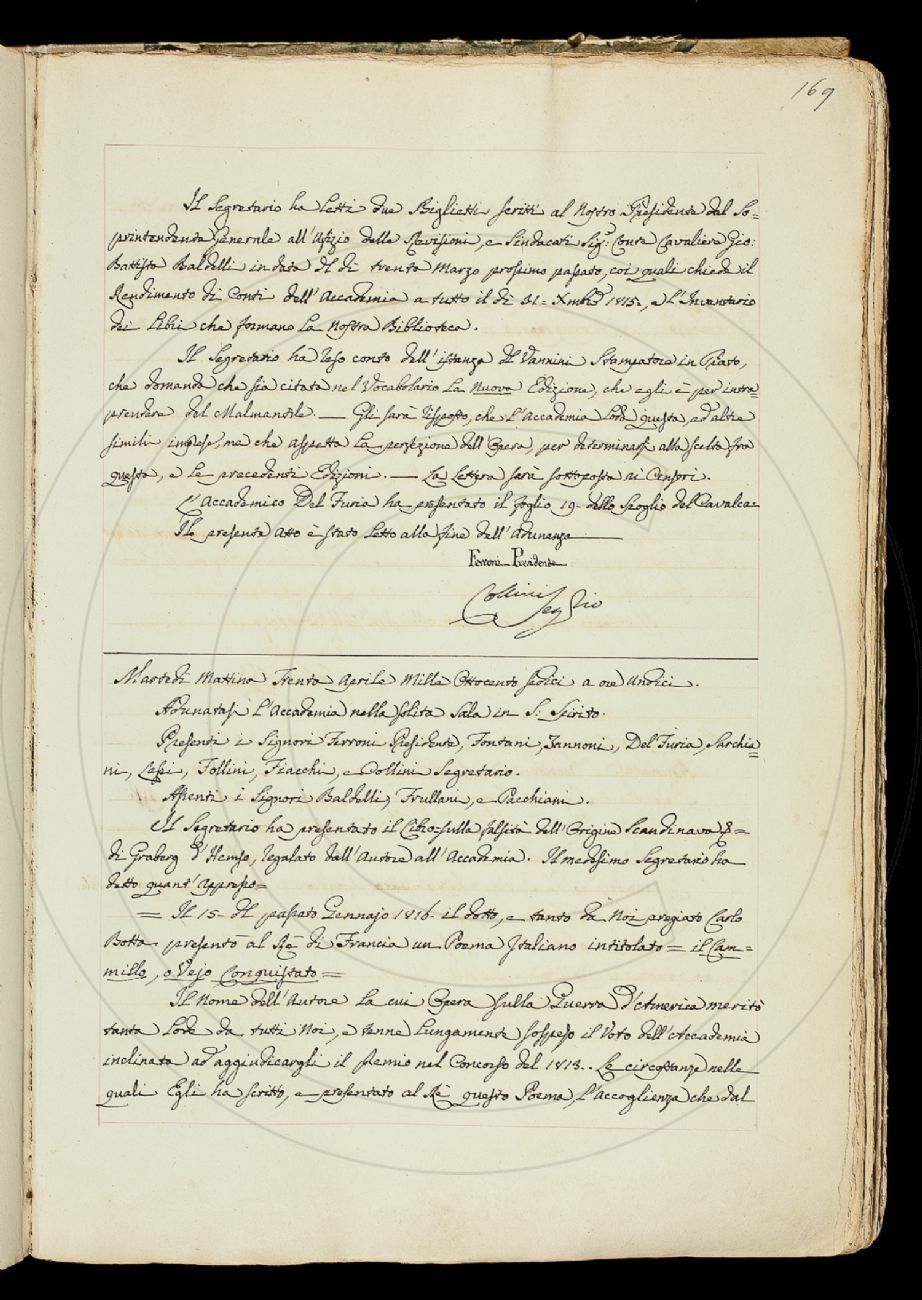 169
Il Segretario ha letti due Biglietti scritti al Nostro Presidente dal So=
printendente Generale all'Ufizio delle Revisioni, e Sindacati Sig: Conte Cavaliere Gio:
Battista Baldelli in data del dì trenta Marzo prossimo passato, coi quali chiede il
Rendimento di Conti dell'Accademia a tutto il dì 31= Xmbre 1815, e l'Inventario
dei Libri che formano la Nostra Biblioteca.
Il Segretario ha reso conto dell'istanza del Vannini Stampatore in Prato,
che domanda che sia citata nel Vocabolario la nuova Edizione, che egli è per intra=
prendere del Malmantile. — Gli sarà risposto, che l'Accademia loda questa, ed altre
simili imprese, ma che aspetta la perfezione dell'Opera, per determinarsi alla scelta fra
questa, e le precedenti Edizioni. — La Lettera sarà sottoposta ai Censori.
L'Accademico Del Furia ha presentato il foglio 19. dello Spoglio del Cavalca=
Il presente Atto è stato letto alla fine dell'Adunanza
Ferroni Presidente
Collini Segrio
Martedì Mattina Trenta Aprile Mille Ottocento sedici a ore Undici.
Adunatasi l'Accademia nella solita Sala in S. Spirito.
Presenti i Signori Ferroni Presidente, Fontani, Zannoni, Del Furia, Sarchia=
ni, Lessi, Follini, Fiacchi, e Collini Segretario.
Assenti i Signori Baldelli, Frullani, e Pacchiani.
Il Segretario ha presentato il Libro=sulla falsità dell'Origine Scandinava &=
di Graberg d'Hemso, regalato dall'Autore all'Accademia. Il medesimo Segretario ha
detto quant'appresso=
= Il 15. del passato Gennajo 1816. il dotto, e tanto da Noi pregiato Carlo
Botta presentò al Rè di Francia un Poema Italiano intitolato = il Cam=
millo, o Vejo Conquistato =
Il Nome dell'Autore la cui Opera sulla Guerra d'America meritò
tanta lode da tutti Noi, e tenne lungamente sospeso il Voto dell'Accademia
inclinata ad aggiudicargli il premio nel Concorso del 1813. Le circostanze nelle
quali Egli ha scritto, e presentato al Rè questo Poema, l'Accoglienza che dal